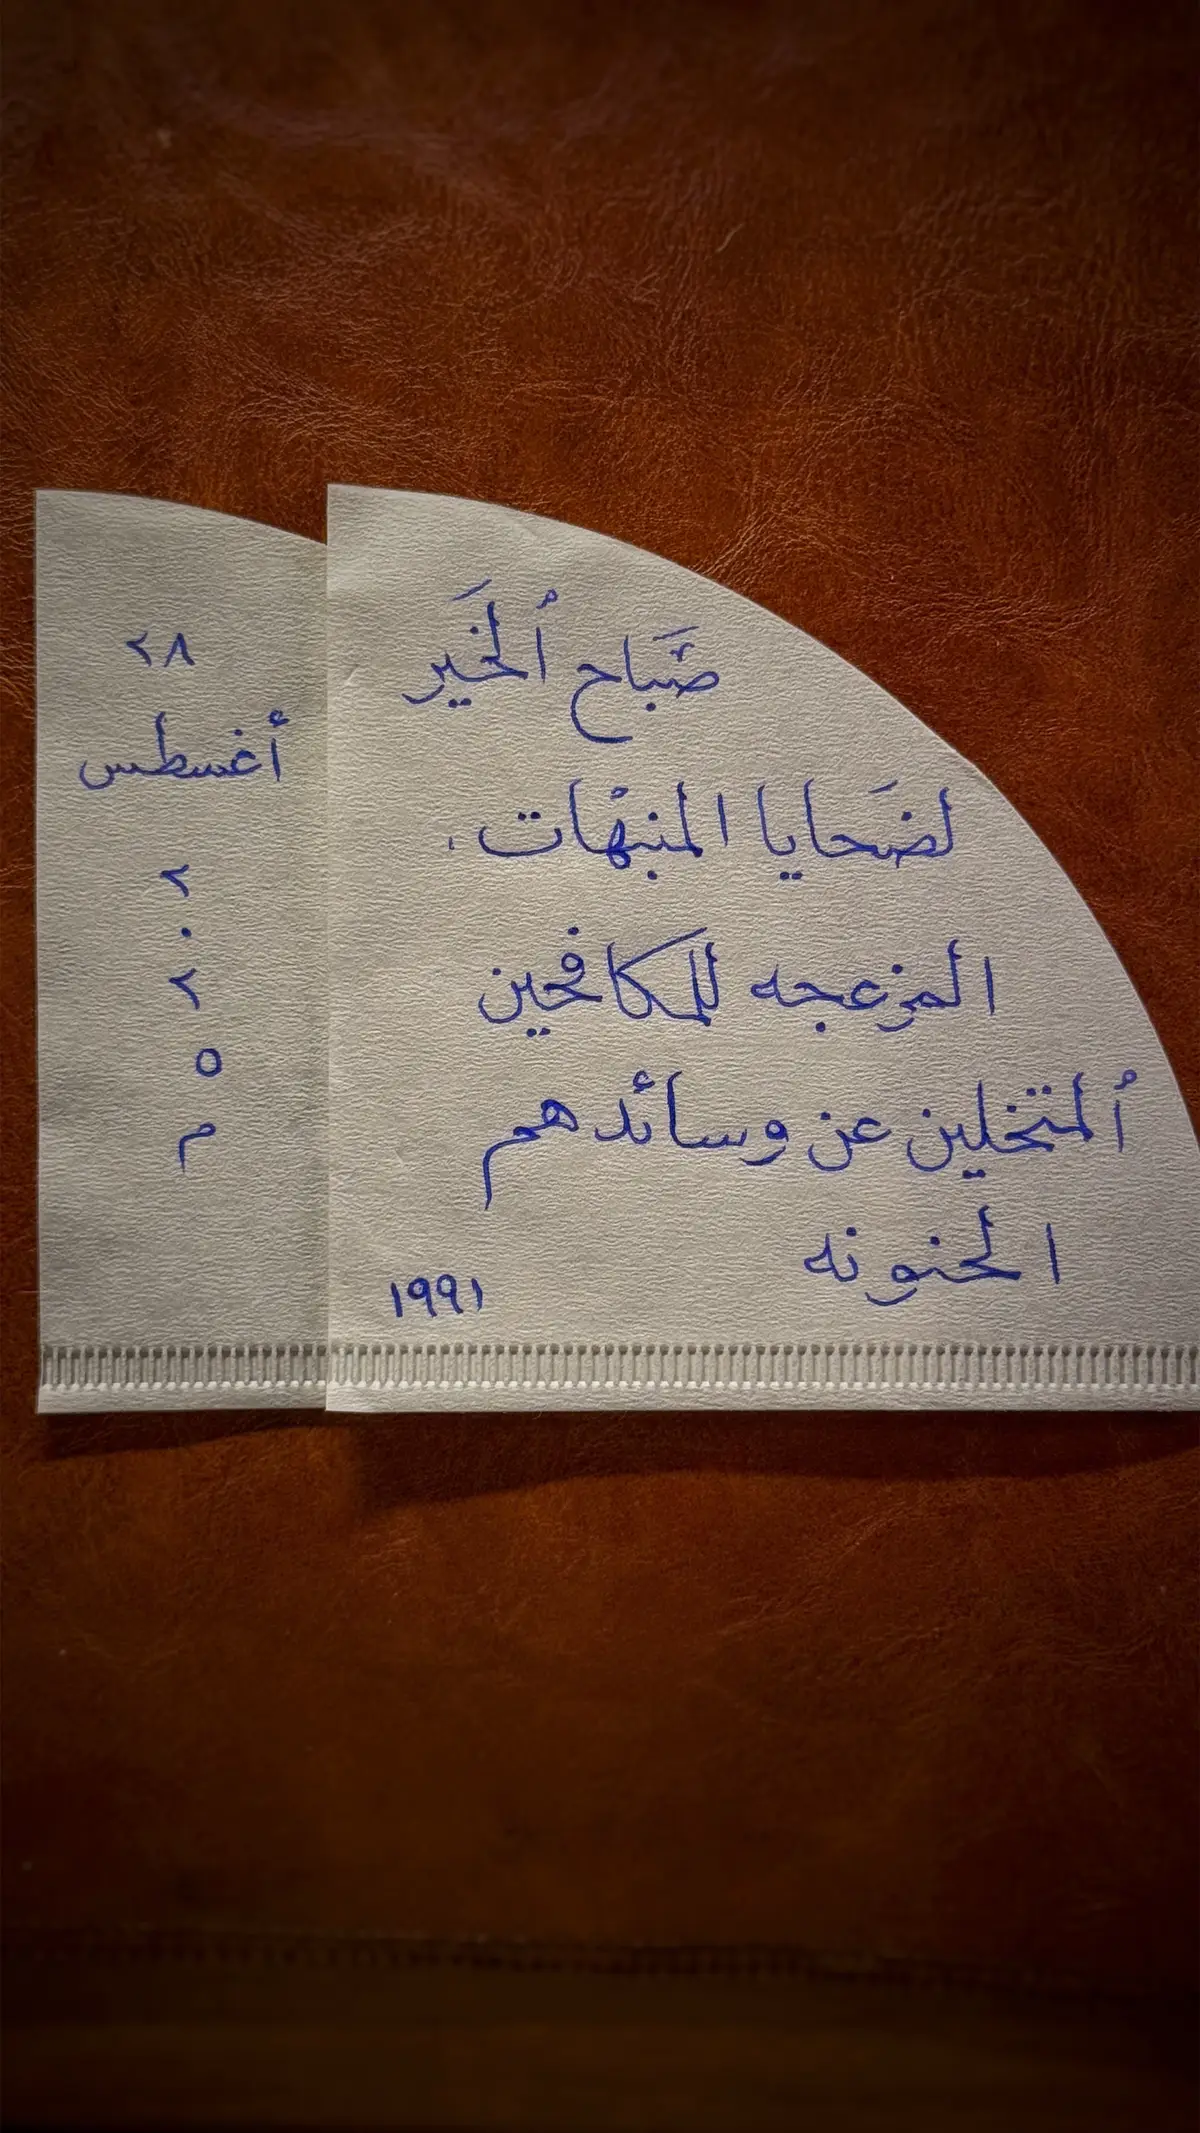 صَّبَاح ٱلخَير
لضَحايا المنبهْات،
المزعجه للمكافحين
ٱلمتخلين عن وسائدهم
الحنونه
١٩٩١
٢٨
أغسطس
٢
٠
٢
٥
م